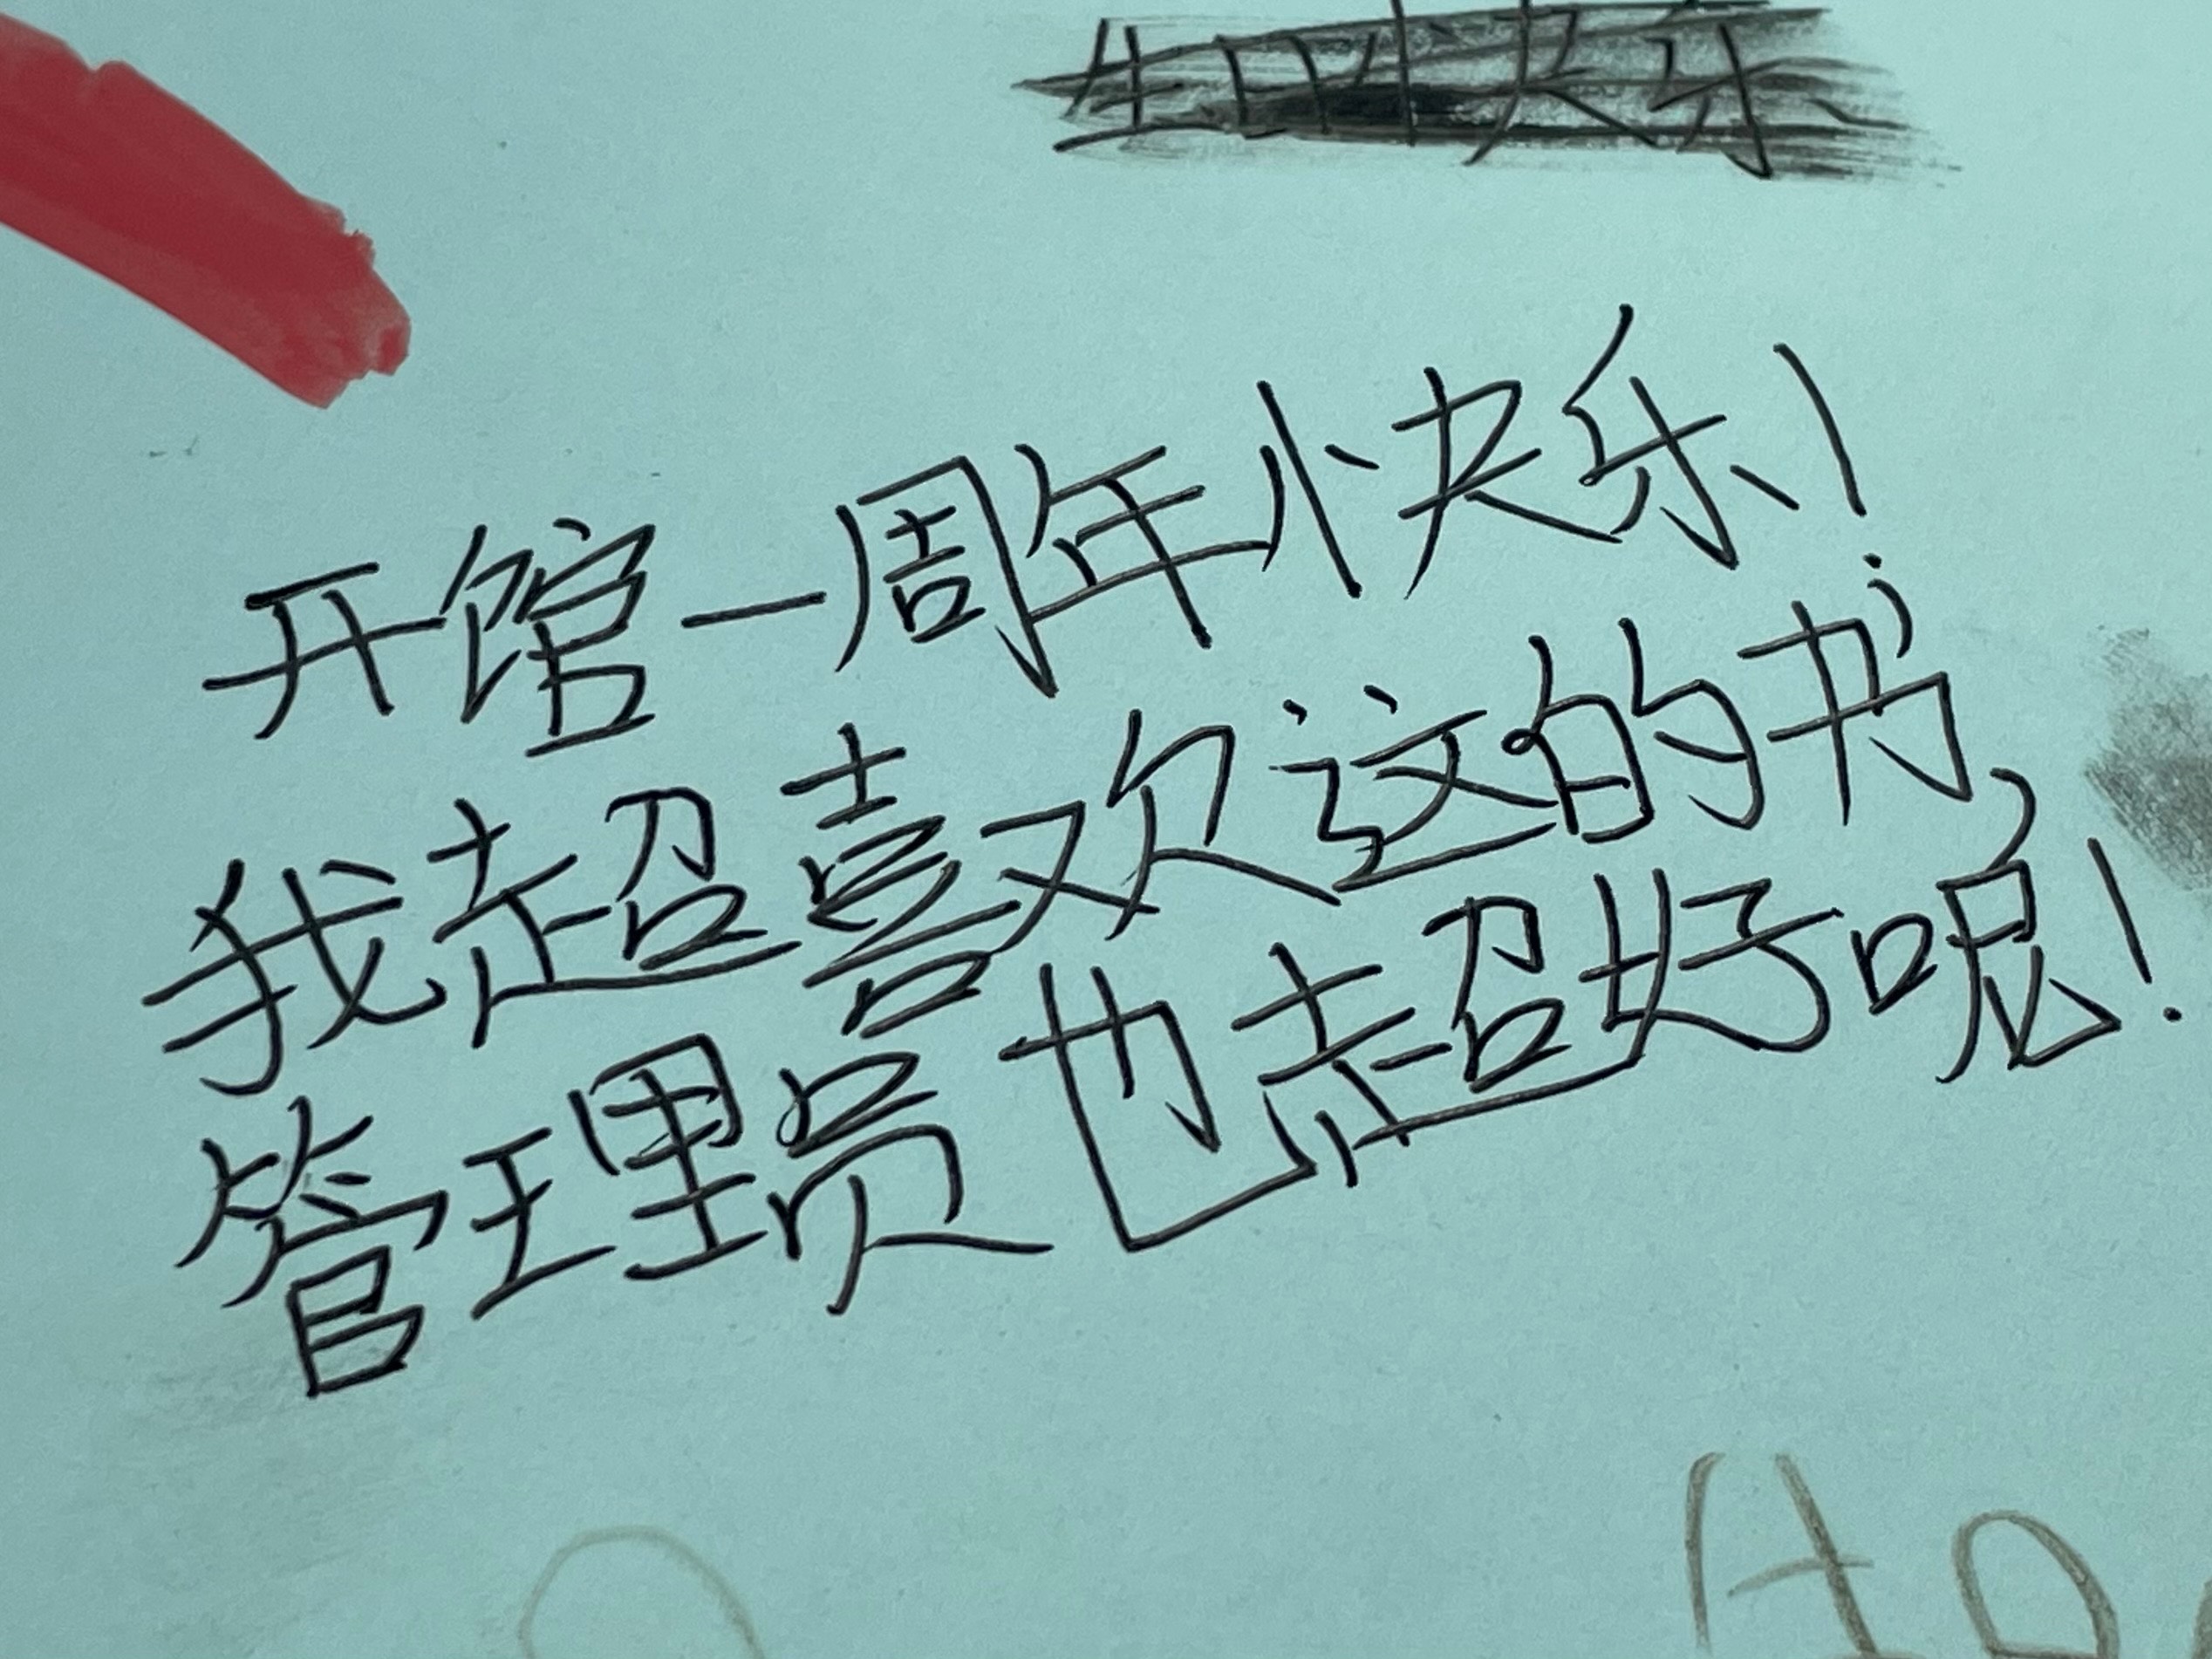 开馆一周年快乐!
我超喜欢这的书,
管理员也超好呢!